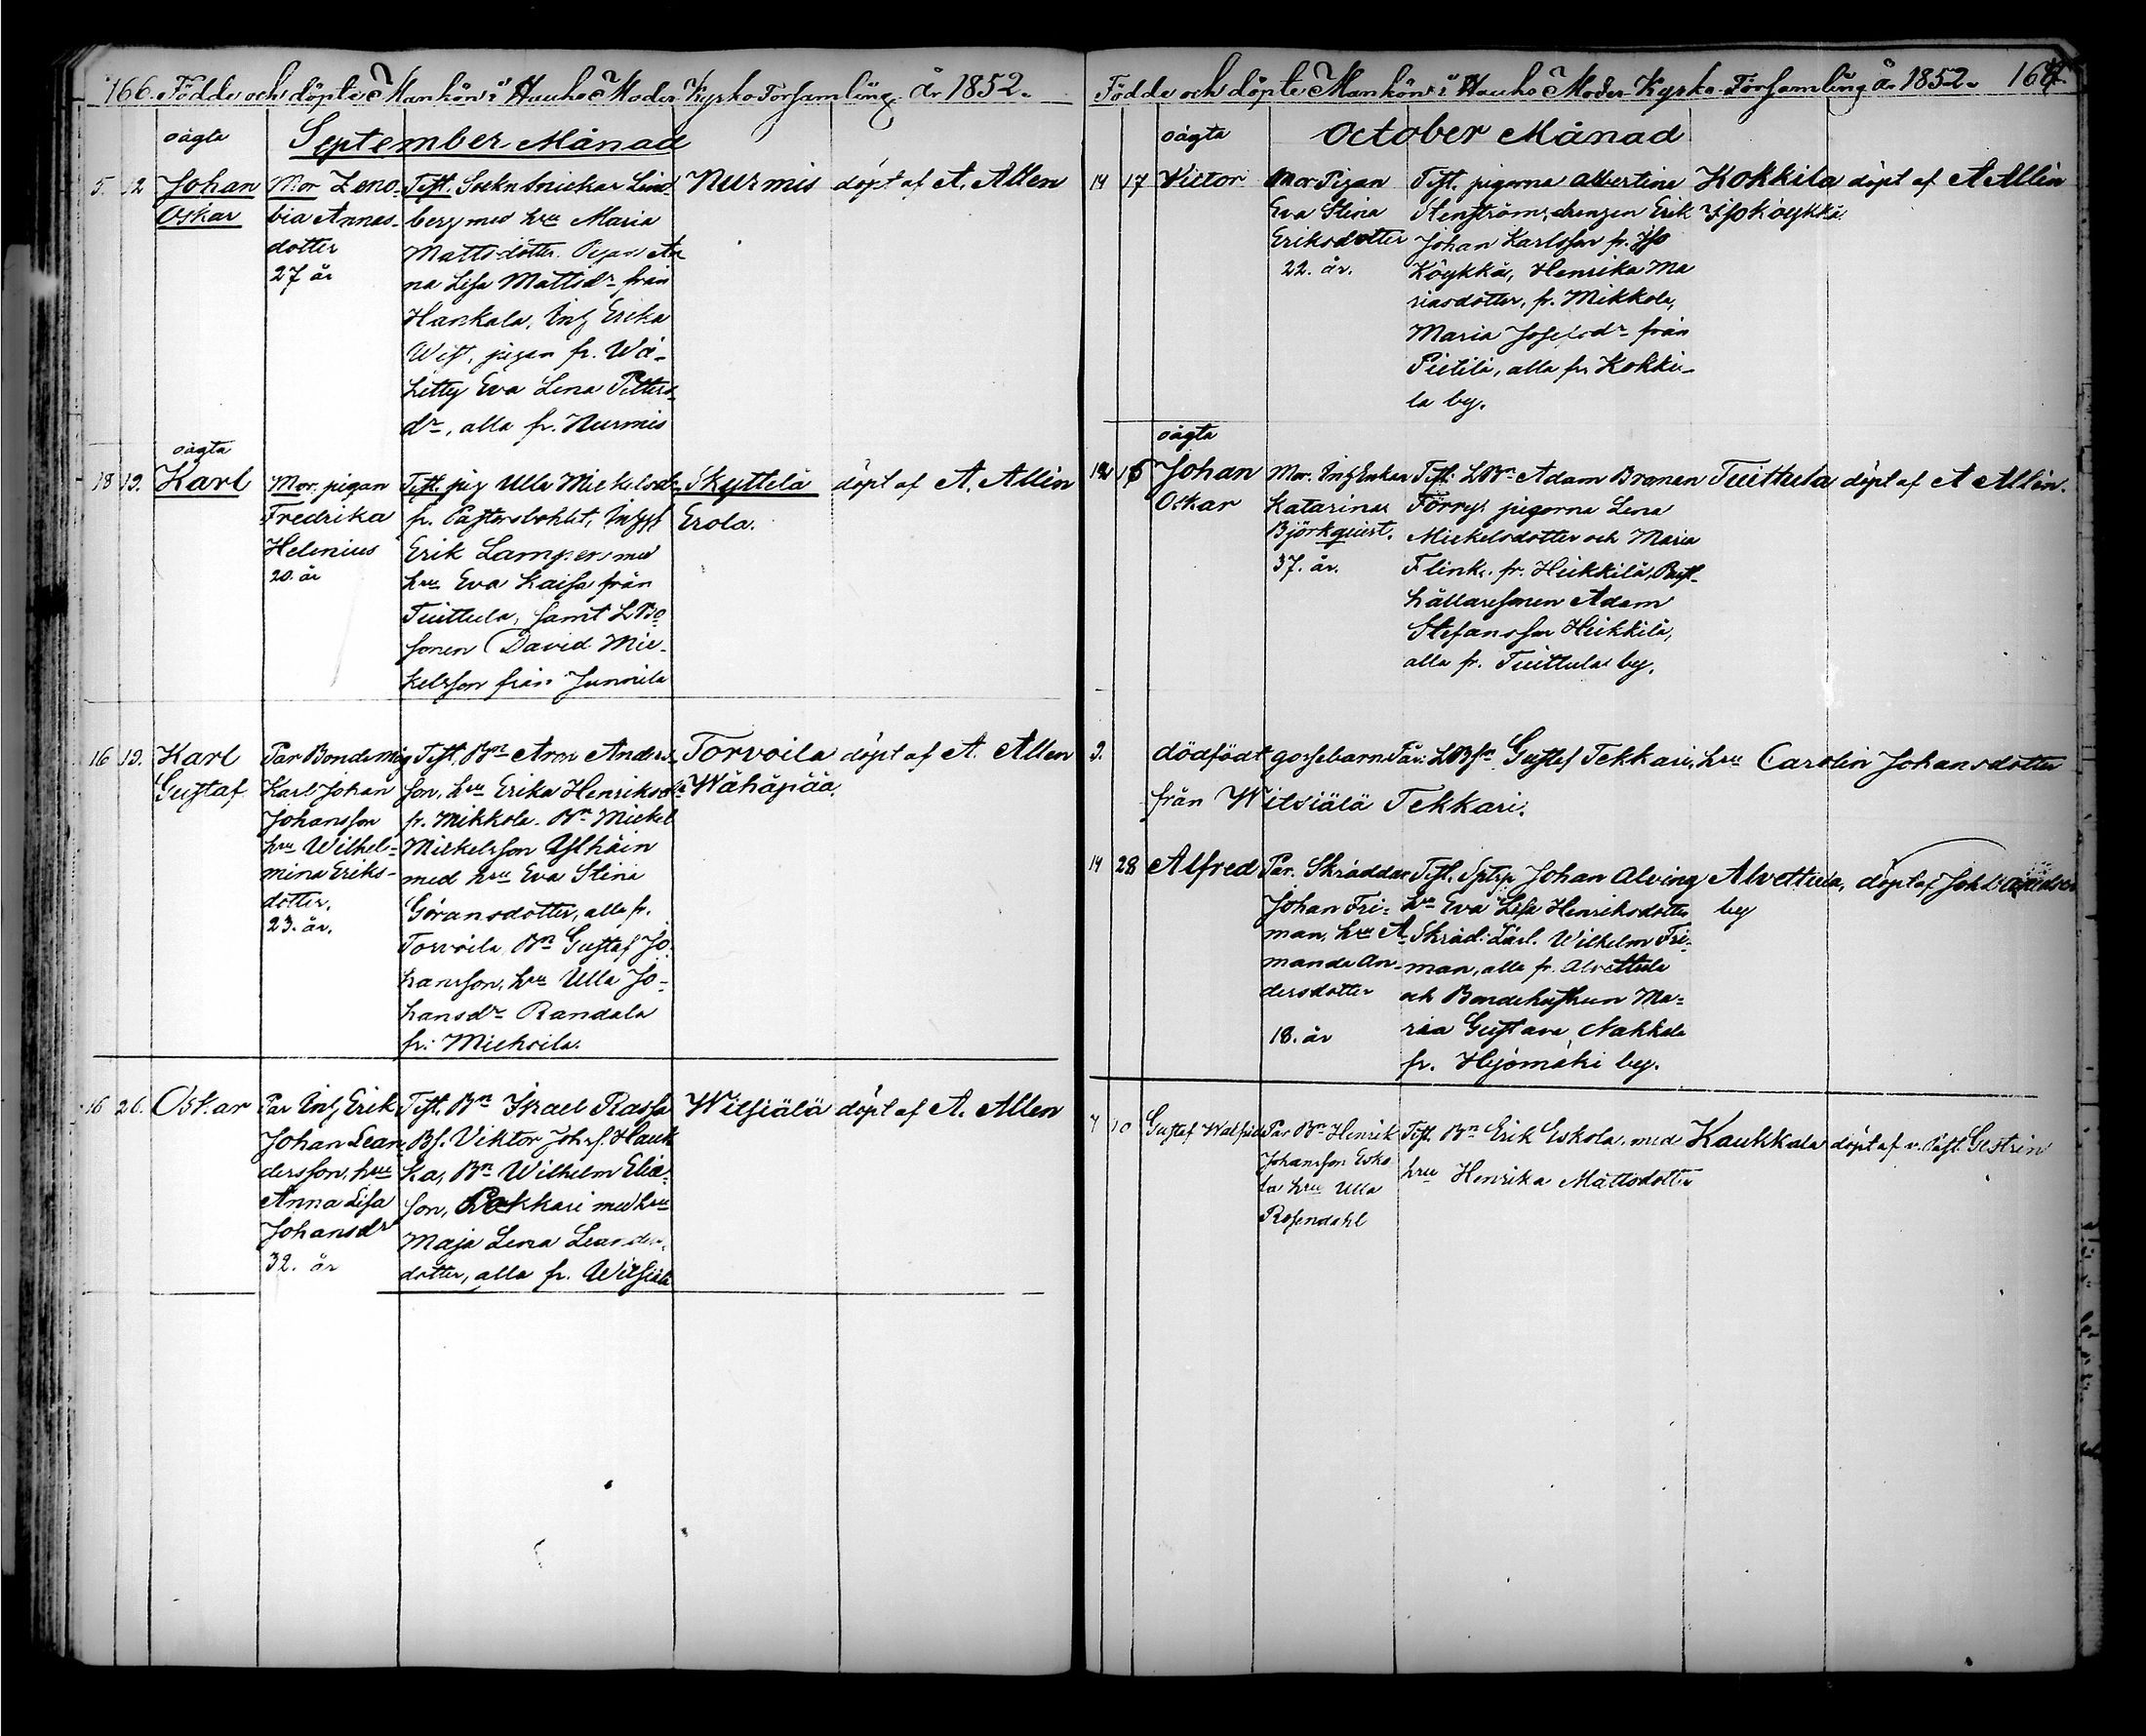 166. Födde och döpte Mankön i Hauho Moder Kyrko Församling År 1852.
oägta
September Månad
5. 12 Johan
Oskar
Mor Zeno-
bia Annas-
dotter
27 år
Test. Sockn Snickar Lind-
berg med hru Maria
Mattsdotter. Pigan An
na Lisa Mattsdr från
Hankala, Inh Erika
Wist, pigan fr. Wä-
Letty Eva Lena Petters-
dr, alla fr. Nurmis
Nurmis
döpt af A. Allén
oägta
18 19. Karl
Mor. pigan
Fredrika
Helenius
20. år
Test. pig Ulla Mickelsdr
fr. Pastorsbohlet, Inhys
Erik Lampen med
hru Eva Kaisa från
Tuittula, samt LBo
sonen David Mic-
kelsson från Junnila
Skyttelä
Erola.
döpt af A. Allén
16 19. Karl
Gustaf
Par Bondemåg
Karl Johan
Johansson
hru Wilhel-
mina Eriks-
dotter.
23. år.
Test. Bn Aron Anders-
son, hru Erika Henriksdr
fr. Mikkola. Bn Mickel
Mickelsson Ylhäin
med hru Eva Stina
Göransdotter, alla fr.
Torvoila, Bn Gustaf Jo-
hansson, hru Ulla Jo-
hansdr Randala
fr. Miehoila.
Torvoila
Wähäpää.
döpt af A. Allén
16 26. Oskar
Par Inh Erik
Johan Lean
dersson, hru
Anna Lisa
Johansdr
32. år
Test. Bn Israel Rassa
Bs. Viktor Johss. Hauk
ka, Bn Wilhelm Elias-
son, Pakkari med hru
Maja Lena Leanders-
dotter, alla fr. Witsiälä
Witsiälä
döpt af A. Allén
Födde och döpte Mankön i Hauho Moder Kyrko-Församling År 1852. 167.
oägta
October Månad
14 17 Victor
Mor Pigan
Eva Stina
Eriksdotter
22. år.
Test. pigorna Albertina
Stenström, drengen Erik
Johan Karlsson fr. Iso
Köykkä, Henrika Ma
riasdotter, fr. Mikkola,
Maria Josefsdr från
Pietilä, alla fr. Kokki-
la by.
Kokkila
Isoköykkä
döpt af A Allén
oägta
12 16 Johan
Oskar
Mor. Inh Enkan
Katarina
Björkqvist.
37. år.
Test: LBn Adam Branen
Törry, pigorna Lena
Mickelsdotter och Maria
Flink, fr. Heikkilä, Rust-
hållaresonen Adam
Stefansson Heikkilä,
alla fr. Tuittula by.
Tuittula
döpt af A Allén.
2. dödfödt gossebarn Får: LBsn Gustef Tekkari, hru Carolin Johansdotter
från Witsiälä Tekkari.
14 28 Alfred
Par. Skräddar
Johan Fri-
man, hru A-
manda An-
dersdotter
18. år
Test. Sptsp Johan Alving
hru Eva Lisa Henriksdotter
Skräd: Lärl. Wilhelm Fri-
man, alla fr. Alvettula
och Bondehustrun Ma-
ria Gustava Nakkala
fr. Hyömäki by.
Alvettula,
by
döpt af Joh:
7 10 Gustaf Walfrid
Par Bn Henrik
Johansson Esko
la hru Ulla
Rosendahl
Test. Bn Erik Eskola, med
hru Henrika Mattsdotter
Kaukkala
döpt af v. Past. Gestrin